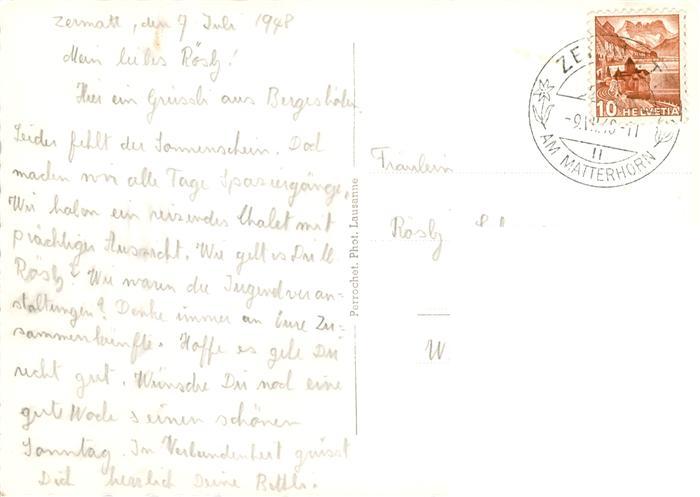 Zermatt, den 9 Juli 1948
Mein liebes Rösly!
Hier ein Grüssli aus Bergeshöhen
Leider fehlt der Sonnenschein. Doch
machen wir alle Tage Spaziergänge.
Wir haben ein reizendes Chalet mit
prächtiger Aussicht. Wie geht es Dir lb.
Rösly? Wie waren die Jugendveran-
staltungen? Denke immer an Eure Zu-
sammenkünfte. Hoffe es gehe Dir
recht gut. Wünsche Dir noch eine
gute Woche & einen schönen
Sonntag. In Verbundenheit grüsst
Dich herzlich Deine
Perrochet. Phot. Lausanne
10 HELVETIA
ZE
-9.VII.48-11
II
AM MATTERHORN
Fräulein
Rösly
W